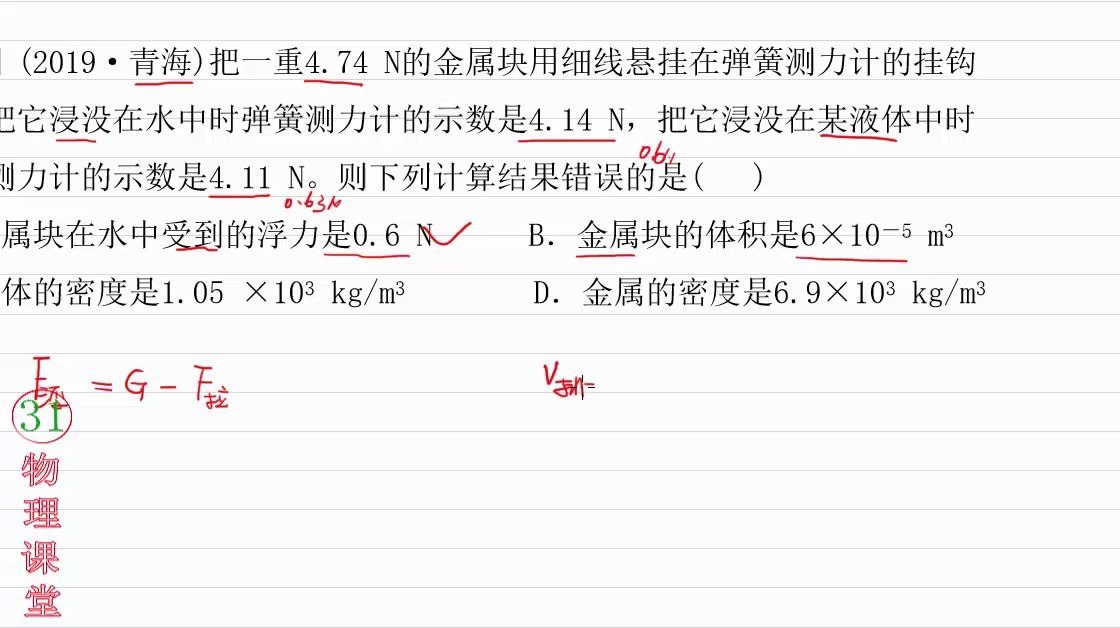 (2019·青海)把一重4.74 N的金属块用细线悬挂在弹簧测力计的挂钩
把它浸没在水中时弹簧测力计的示数是4.14 N，把它浸没在某液体中时
测力计的示数是4.11 N。则下列计算结果错误的是(　　)
0.63N
属块在水中受到的浮力是0.6 N　　B. 金属块的体积是6×10⁻⁵ m³
体的密度是1.05 ×10³ kg/m³　　D. 金属的密度是6.9×10³ kg/m³
F浮 = G - F拉　　V排=
31
物
理
课
堂